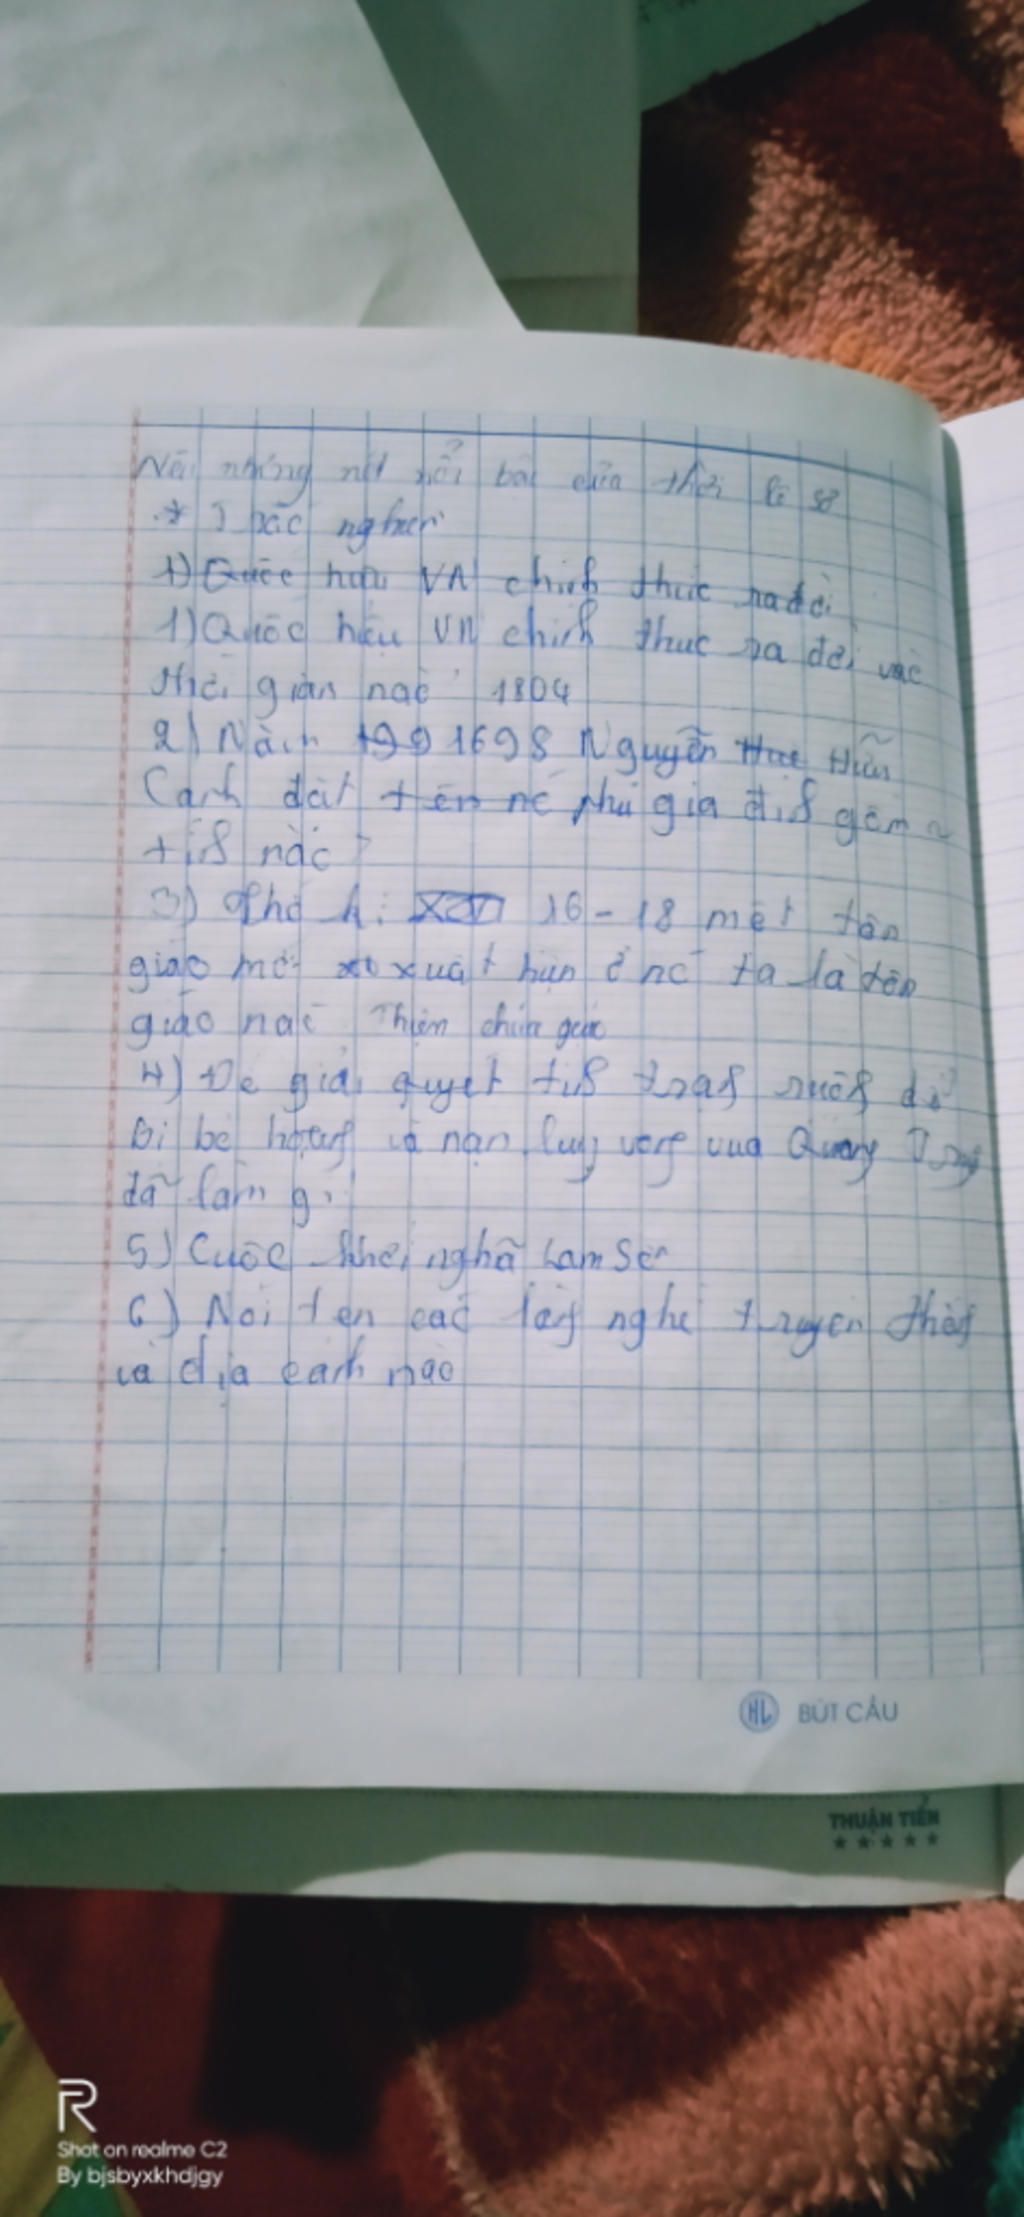 Nêu những nét nổi bật của thời lê sơ
* Trắc nghiệm
1) Quốc hiệu VN chính thức ra đời
1) Quốc hiệu VN chính thức ra đời vào
thời gian nào 1804
2) Năm 1698 Nguyễn Hữu
Cảnh đặt phủ gia định gồm
tỉnh nào ?
3) Thế kỉ 16 - 18 một tôn
giáo mới xuất hiện ở nc ta là tôn
giáo nào Thiên chúa giáo
4) Để giải quyết tình trạng ruộng đất
bỏ hoang và nạn lưu vong vua Quang Trung
đã làm gì
5) Cuộc khởi nghĩa Lam Sơn
6) Nói tên các làng nghề truyền thống
và địa danh nào
HL BÚT CẦU
THUẬN TIẾN
Shot on realme C2
By bjsbyxkhdjgy